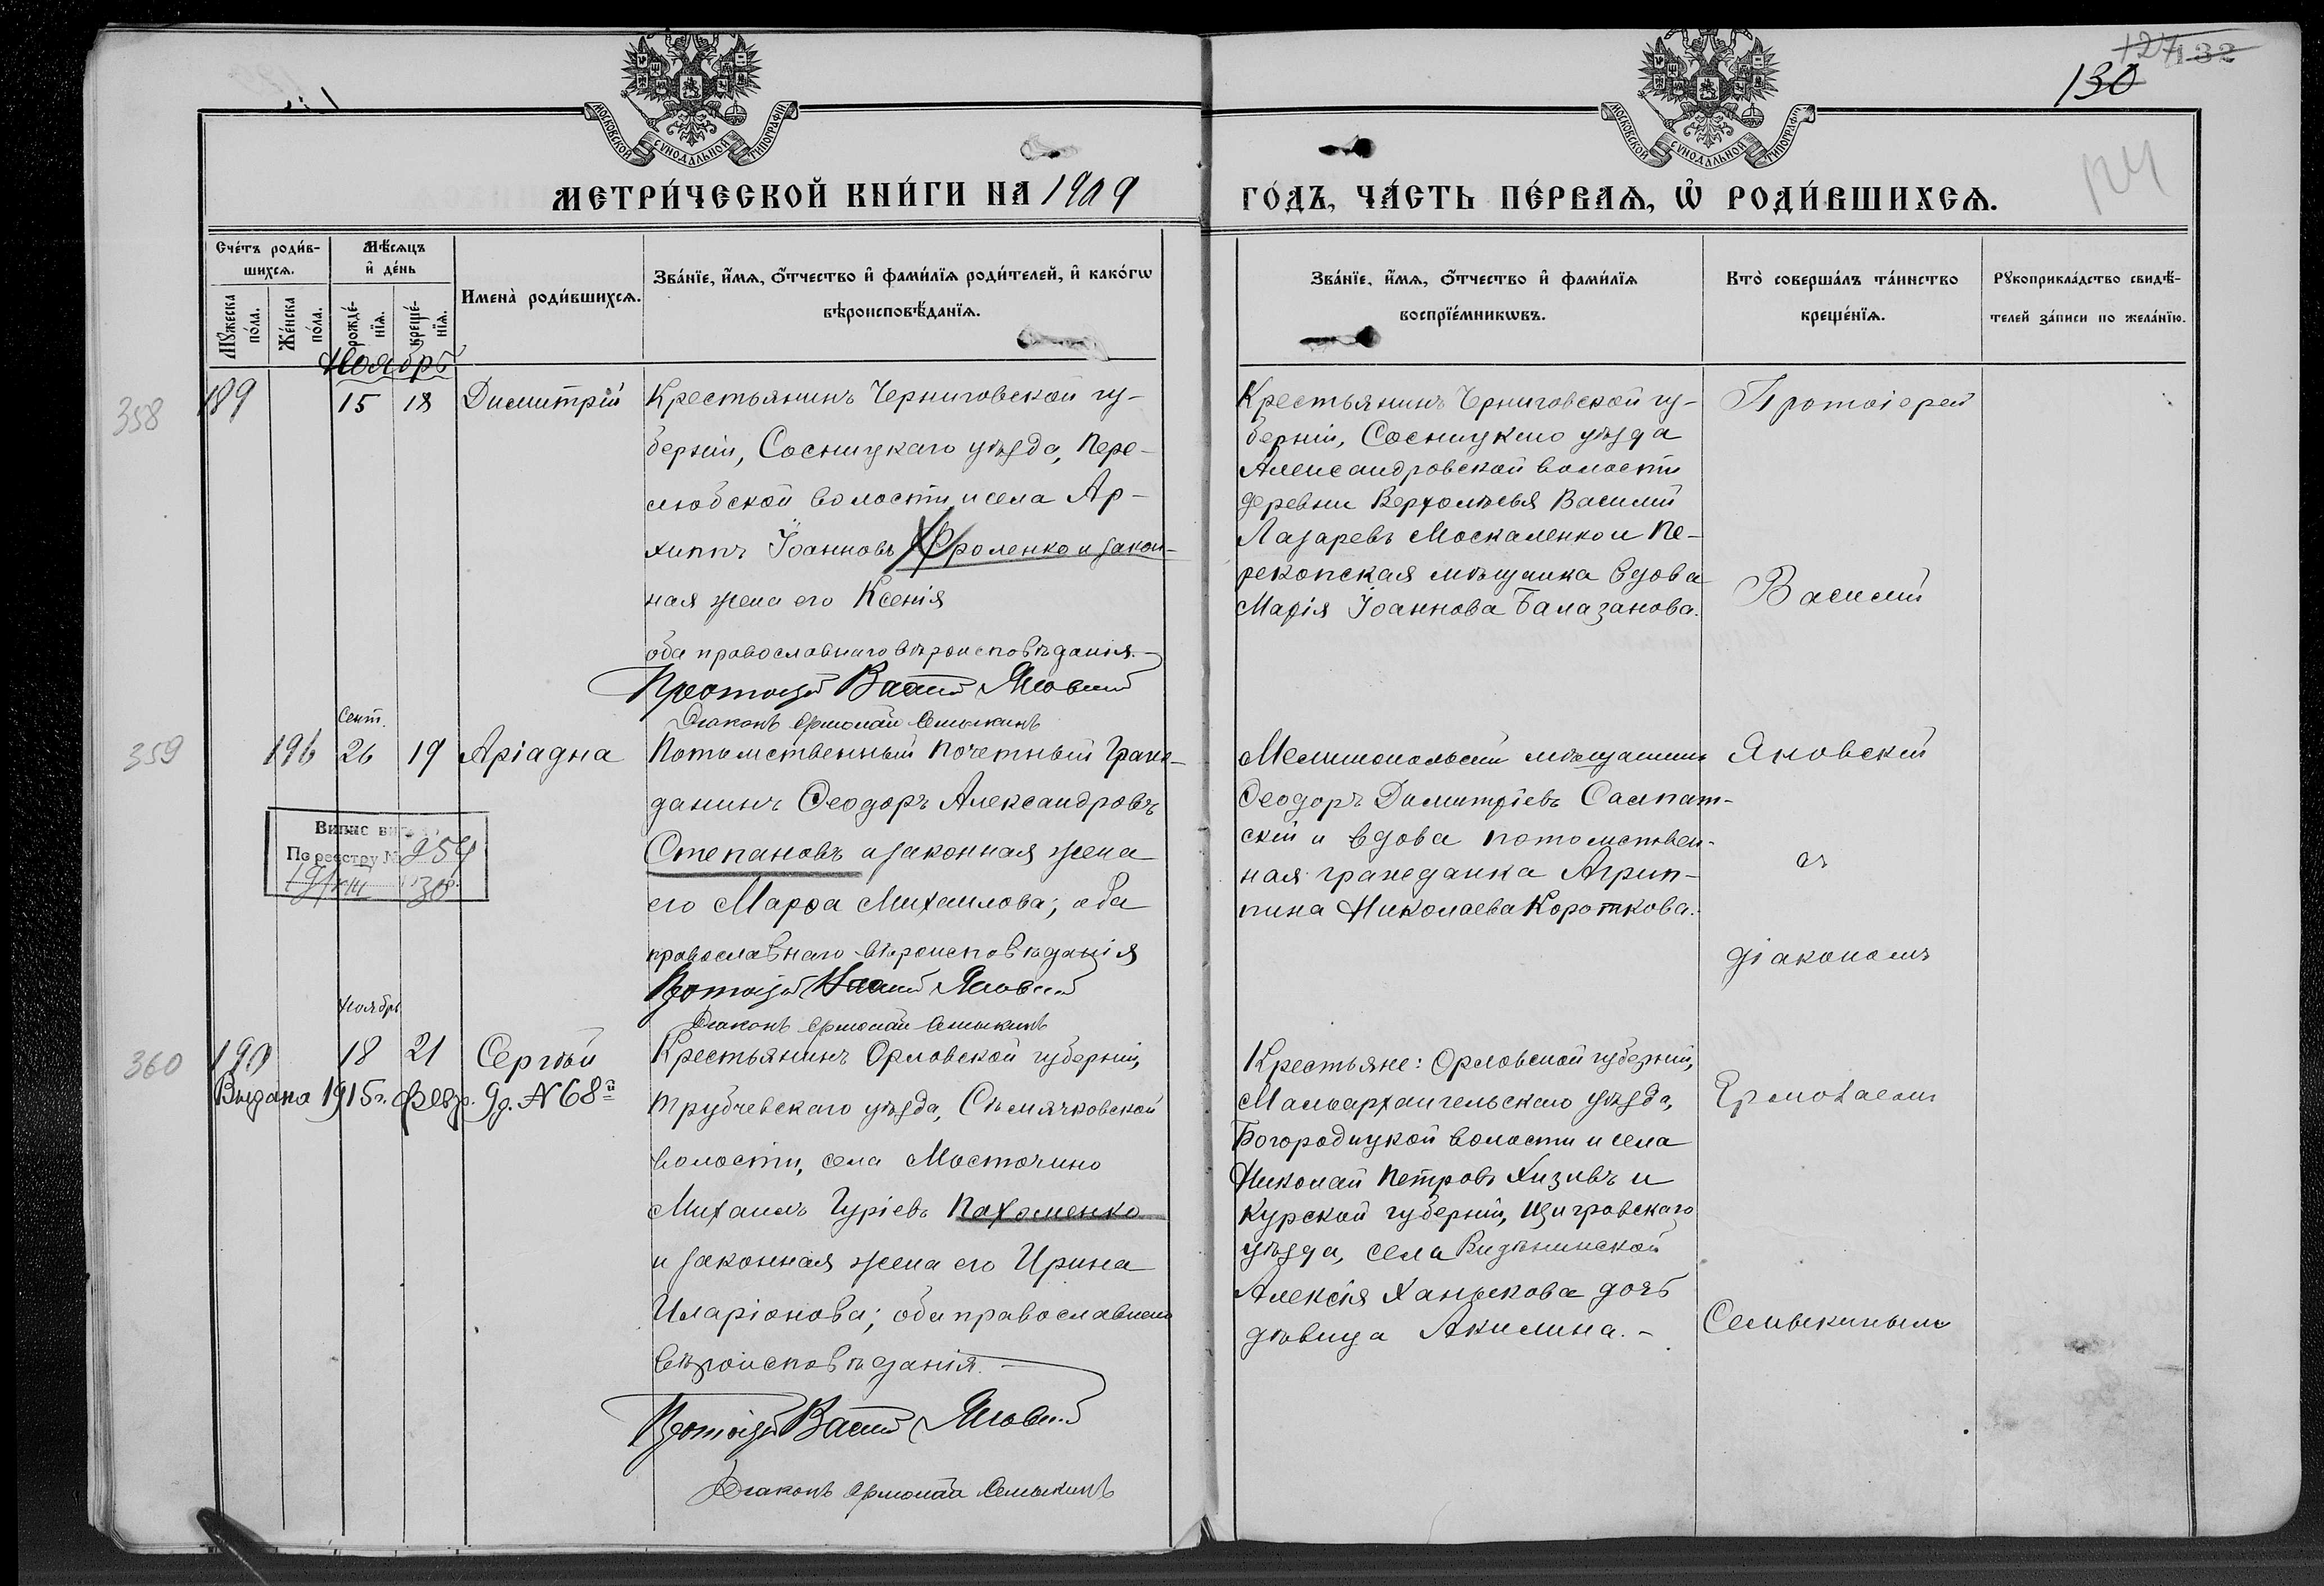 127 132
130
124
МОСКОВСКОЙ СѴНОДАЛЬНОЙ ТИПОГРАФІИ
МОСКОВСКОЙ СѴНОДАЛЬНОЙ ТИПОГРАФІИ
МЕТРИ́ЧЕСКОЙ КНИ́ГИ НА 1909
ГО́ДЪ, ЧА́СТЬ ПЕ́РВАѦ, Ѡ҆ РОДИ́ВШИХСѦ.
Сче́тъ роди́в-
шихсѧ.
Мꙋ́жеска по́ла.
Же́нска по́ла.
Мѣ́сѧцъ
и҆ де́нь
рожде́-нїѧ.
креще́-нїѧ.
Имена̀ роди́вшихсѧ.
Зва́нїе, и҆́мѧ, ѻ҆́тчество и҆ фами́лїѧ роди́телей, и҆ како́гѡ
вѣроисповѣ́данїѧ.
Зва́нїе, и҆́мѧ, ѻ҆́тчество и҆ фами́лїѧ
воспрїе́мникѡвъ.
Кто̀ соверша́лъ та́инство
креще́нїѧ.
Рꙋкоприкла́дство свидѣ́-
телей за́писи по жела́нїю.
Ноябрь
358
189 15 18 Димитрій
Крестьянинъ Черниговской гу-
берніи, Сосницкаго уѣзда, Пере-
любской волости и села Ар-
хиппъ Іоанновъ Фроленко и закон-
ная жена его Ксенія
оба православнаго вѣроисповѣданія.
Протоіерей Василій Яновскій
Діаконъ Ермолай Семыкинъ
Крестьянинъ Черниговской гу-
берніи, Сосницкаго уѣзда
Александровской волости
деревни Верхолѣсья Василій
Лазаревъ Москаленко и Пе-
рекопская мѣщанка вдова
Марія Іоаннова Балазанова.
Протоіерей
Василій
359
Сент.
196 26 19 Аріадна
Потомственный почетный граж-
данинъ Ѳеодоръ Александровъ
Степановъ и законная жена
его Марѳа Михаилова; оба
православнаго вѣроисповѣданія
Протоіерей Василій Яновскій
Діаконъ Ермолай Семыкинъ
Мелитопольскій мѣщанинъ
Ѳеодоръ Димитріевъ Сампат-
скій и вдова потомствен-
ная гражданка Агрип-
пина Николаева Короткова.
Яновскій
съ
діакономъ
По реестру № 959
360
Ноябрь
190 18 21 Сергѣй
Выдана 1915 г. февр. 9 д. № 68й
Крестьянинъ Орловской губерніи,
Трубчевскаго уѣзда, Сѣмячковской
волости, села Мосточино
Михаилъ Гуріевъ Пахоменко
и законная жена его Ирина
Иларіонова; оба православнаго
вѣроисповѣданія.
Протоіерей Василій Яновскій
Діаконъ Ермолай Семыкинъ
Крестьяне: Орловской губерніи,
Малоархангельскаго уѣзда,
Богородицкой волости и села
Николай Петровъ Хизивъ и
Курской губерніи, Щигровскаго
уѣзда, села
Алексія Ханыкова дочь
дѣвица Акилина.
Ермолаемъ
Семыкинымъ